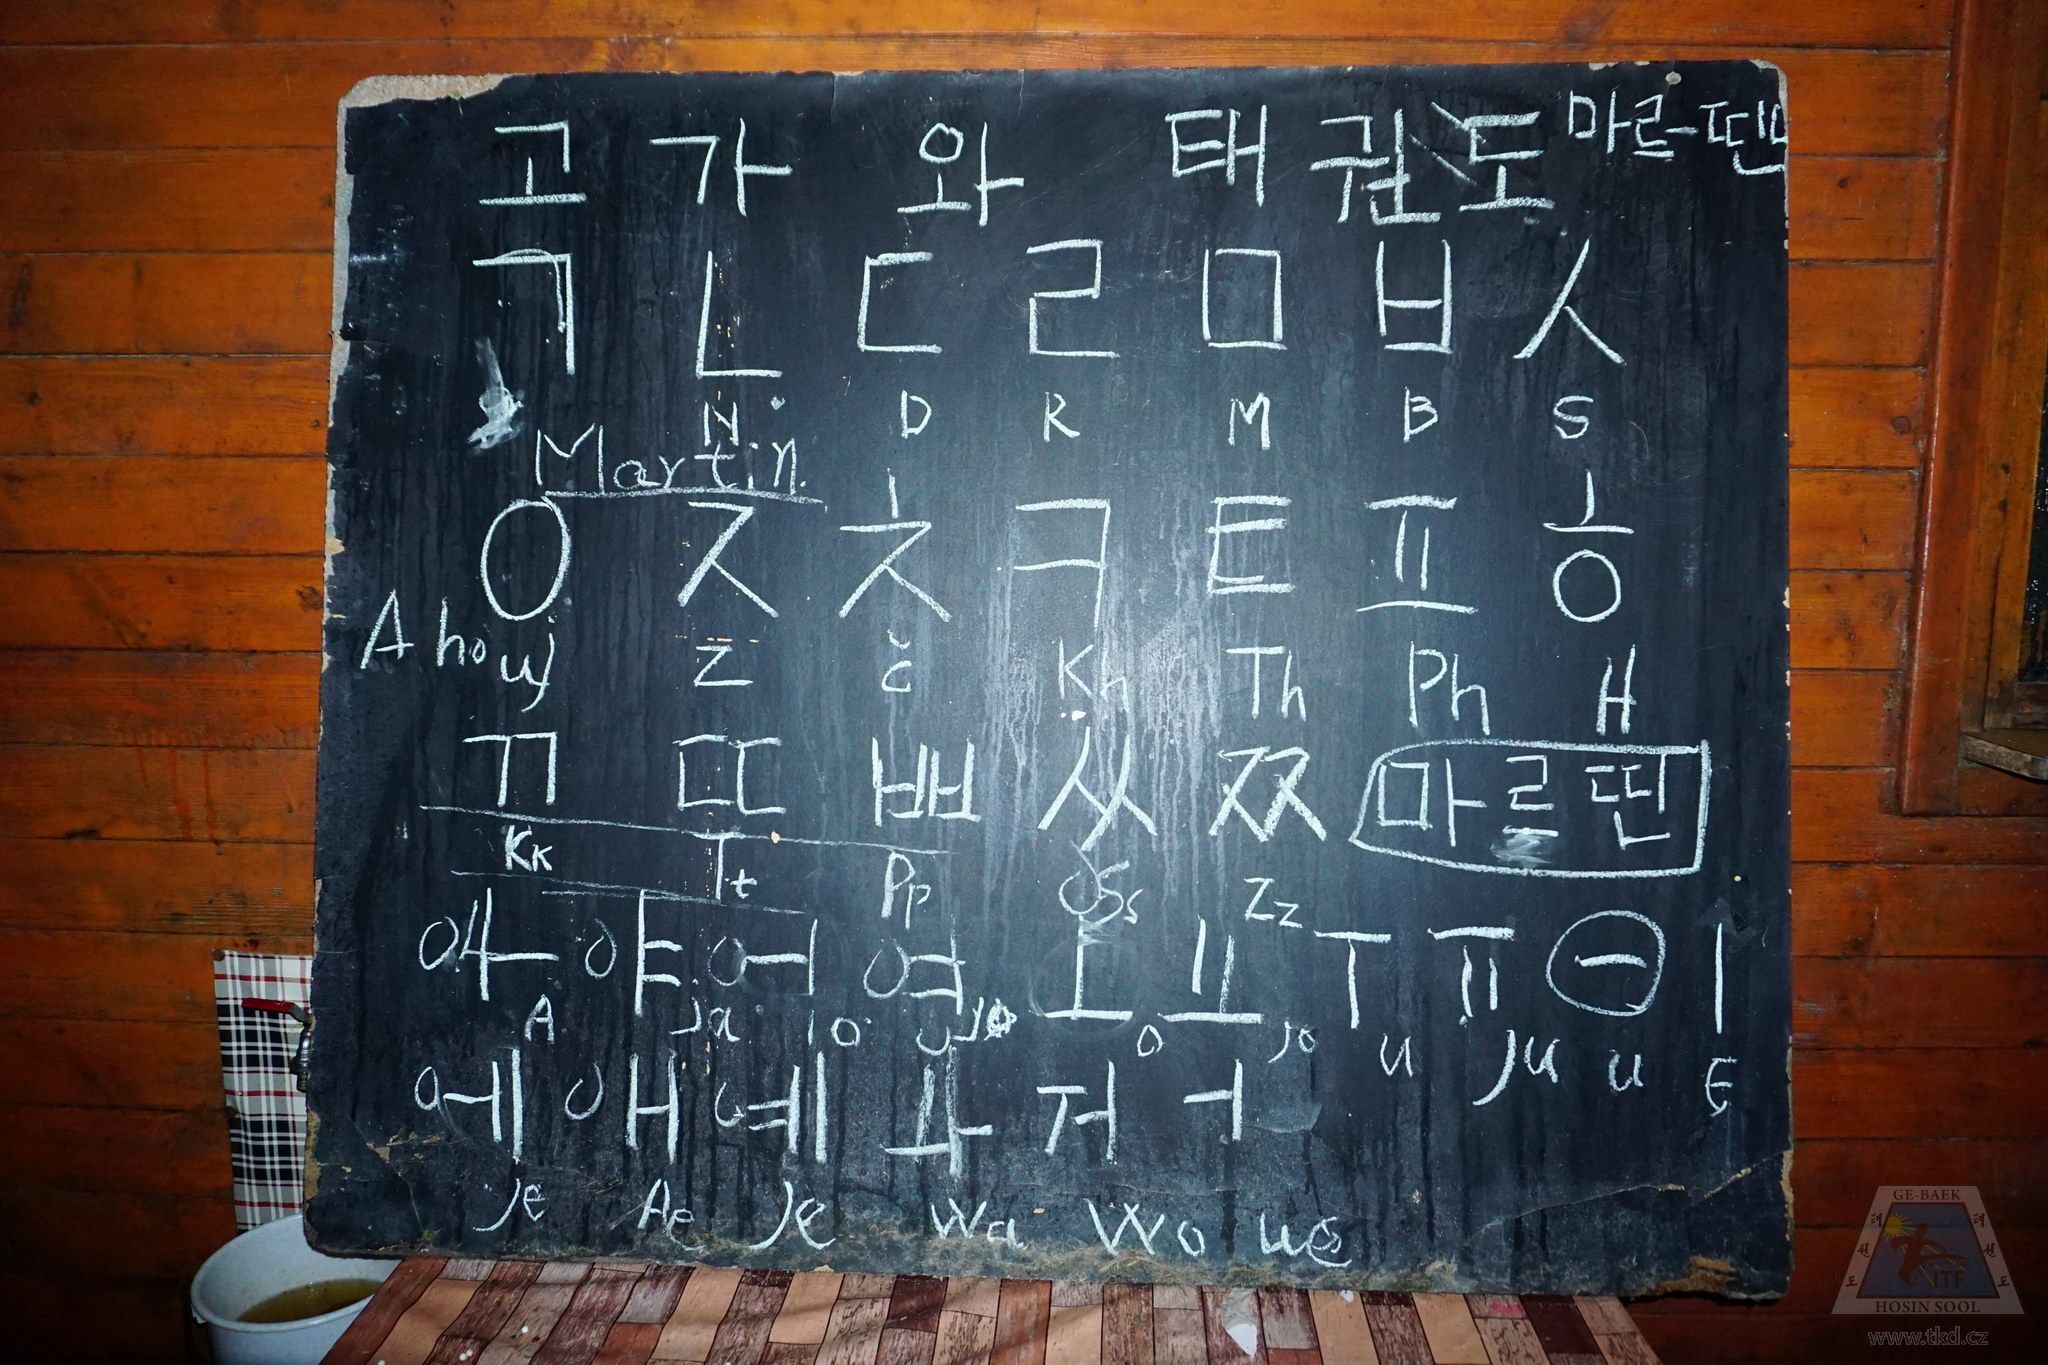 고 가 와 태 권 도 마르띤
ㄱ ㄴ ㄷ ㄹ ㅁ ㅂ ㅅ
N D R M B S
Martin
ㅇ ㅈ ㅊ ㅋ ㅌ ㅍ ㅎ
Ahoj
Z č Kh Th Ph H
ㄲ ㄸ ㅃ ㅆ ㅉ 마르띤
Kk Tt Pp Ss Zz
아 야 어 여 ㅗ ㅛ ㅜ ㅠ ㅡ ㅣ
A ja o jo o jo u ju u
에 애 예 ㅘ ㅝ
je Ae je wa wo ue
GE-BAEK
태 권 도
ITF
태 권 도
HOSIN SOOL
www.tkd.cz